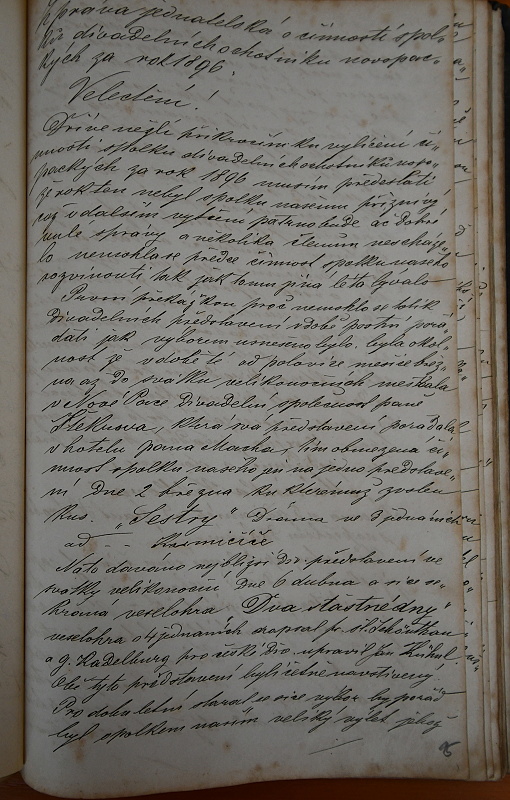 Zpráva jednatelská o činnosti spol-
ku divadelních ochotníků novopac-
kých za rok 1896.
Velectění!
Dříve nežli přikročím ku vylíčení či-
nnosti spolku divadelních ochotníků novo-
packých za rok 1896 musím předeslati
že rok ten nebyl spolku našemu příznivý
což v dalším vylíčení patrno bude ač dobré
vůle správy a několika členům neschá-
lo nemohla se předce činnost spolku našeho
rozvinouti tak jak tomu jiná léta bývalo
První překážkou proč nemohlo se tolik
divadelních představení v době postní pořá-
dati jak výborem usneseno bylo, byla okol-
nost že v době té od polovice měsíce břez-
na až do svátků velikonočních meškala
v Nové Pace divadelní společnost paně
která svá představení pořádala
v hotelu pana Macha, tím obmezena či-
nnost spolku našeho jen na jedno představe-
ní dne 2 března ku kterémuž zvolen
kus. „Sestry" Drama ve 3 jednáních
od
Na to dáváno nejbližší div. představení ve
svátky velikonoční dne 6 dubna a sice se-
hrána veselohra Dva šťastné dny"
veselohra o 4 jednáních sepsal fr. Schönthan
a g. Kadelburg pro české div. upravil Jan Kühnl.
Obě tyto představení byli četně navštíveny.
Pro dobu letní staral se sice výbor by pořád-
byl spolkem naším veliký výlet
95